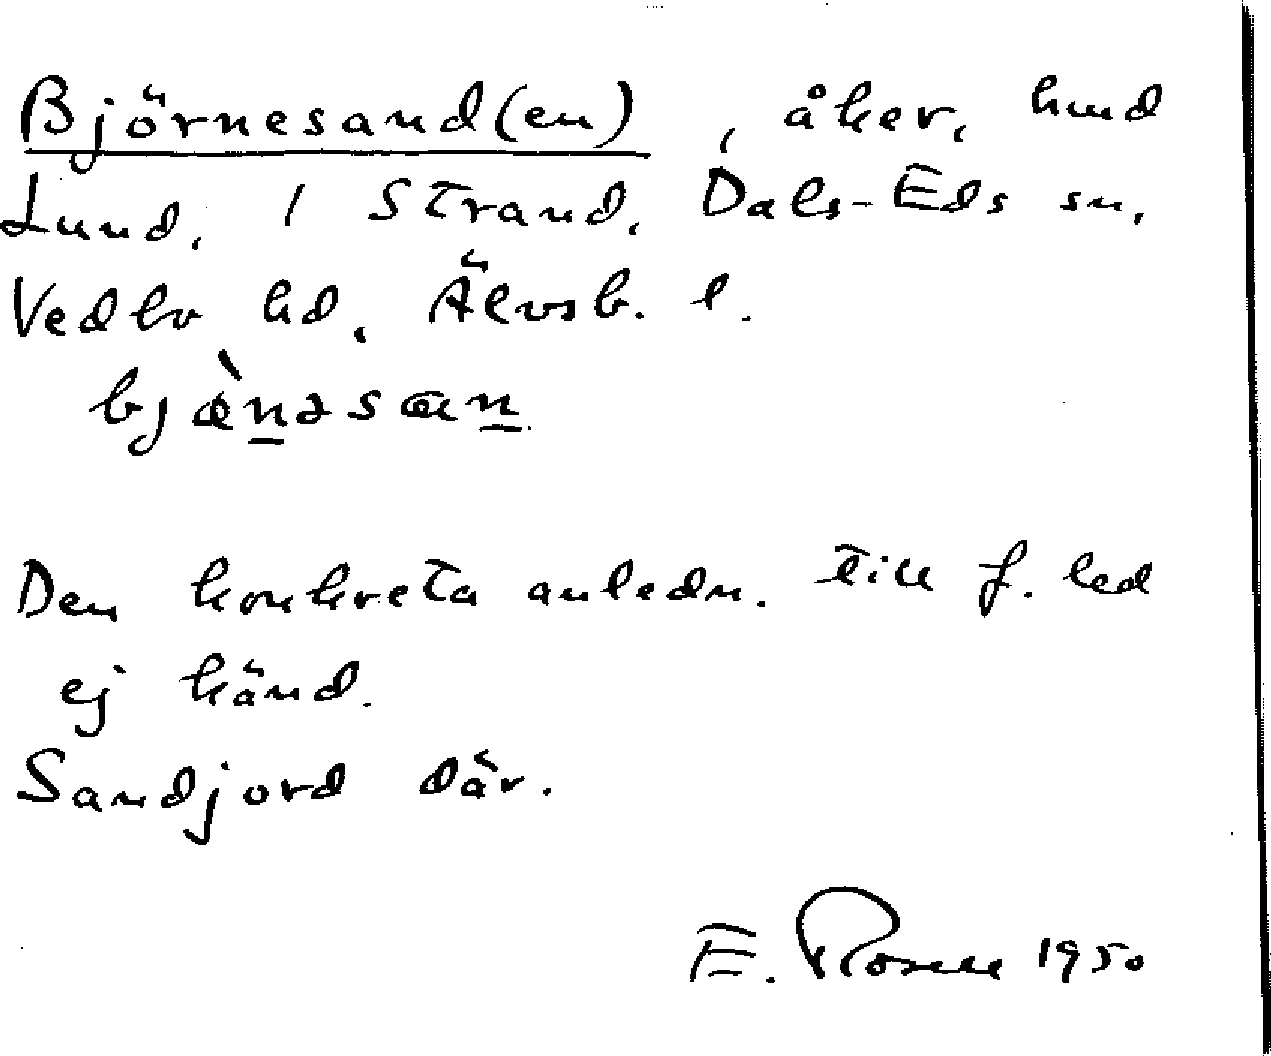 Björnesand(en), åker, hmd
Lund, 1 Strand, Dals-Eds sn,
Vedbo hd, Älvsb. l.
bjæ̀nəsan
Den konkreta anledn. till f. led
ej känd.
Sandjord där.
E. Rosell 1950